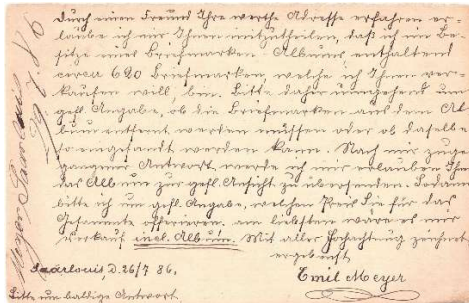 Durch einen Freund Ihre werthe Adresse erfahren er-
laube ich mir Ihnen mitzutheilen, daß ich im Be-
sitze eines Briefmarken-Albums, enthaltend
circa 620 Briefmarken, welche ich Ihnen ver-
kaufen will, bin. Bitte daher umgehend um
gefl. Angabe, ob die Briefmarken aus dem Al-
bum entfernt werden müssen oder ob dasselbe
so eingesandt werden kann. Nach mir zuge-
gangener Antwort, werde ich mir erlauben Ihnen
das Album zur gefl. Ansicht zu übersenden. Sodann
bitte ich um gefl. Angabe, welchen Preis Sie für das
Gesammte offerieren, am liebsten wäre es mir
Verkauf incl. Album. Mit aller Hochachtung zeichnet
ergebenst
Saarlouis, d. 26/7 86.
Emil Meyer
Bitte um baldige Antwort.
Meyer Saarlouis